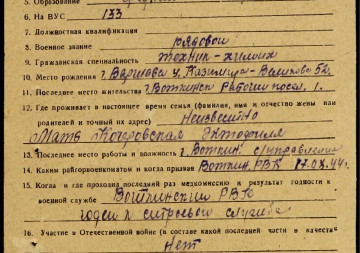 5. Образование
6. На ВУС 133
7. Должностная квалификация
8. Военное звание рядовой
9. Гражданская специальность техник-химик
10. Место рождения г. Варшава ул. Казимира-Великого 52
11. Последнее место жительства г. Воткинск Рабочий посел. 1.
12. Где проживает в настоящее время семья (фамилия, имя и отчество жены или
родителей и точный их адрес) Неизвестно
Мать Кочаровская
13. Последнее место работы и должность г. Воткин.
14. Каким райгорвоенкоматом и когда призван Воткин. РВК 17.08.44 г.
15. Когда и где проходил последний раз медкомиссию и результат годности к
военной службе Воткинский РВК
годен к строевой службе
16. Участие в Отечественной войне (в составе какой последней части в качестве
Нет